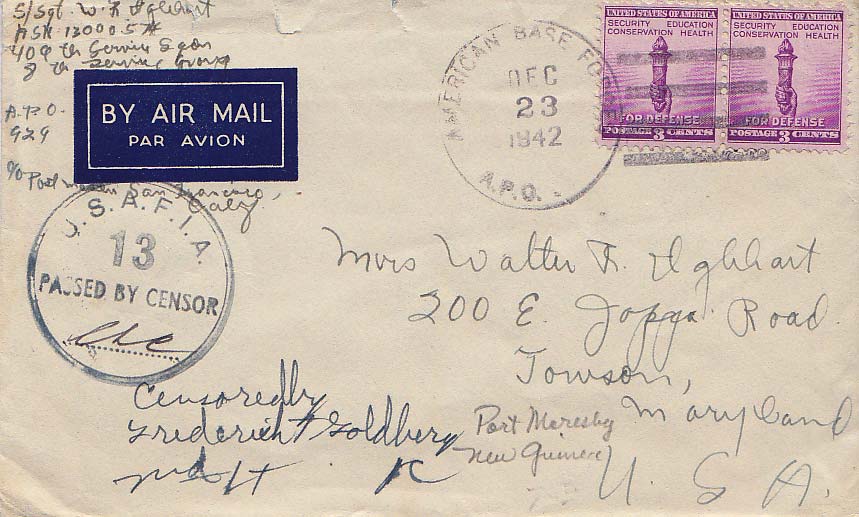 S/Sgt. W. F. Iglehart
ASN-13000
409 th Service Sqdn
8 Th Service Group
A.P.O.
929
c/o Postmaster San Francisco,
Calif.
BY AIR MAIL
PAR AVION
AMERICAN BASE FORCES
DEC
23
1942
A.P.O.
UNITED STATES OF AMERICA
SECURITY EDUCATION
CONSERVATION HEALTH
FOR DEFENSE
POSTAGE 3 CENTS
UNITED STATES OF AMERICA
SECURITY EDUCATION
CONSERVATION HEALTH
FOR DEFENSE
POSTAGE 3 CENTS
U.S.A.F.I.A.
13
PASSED BY CENSOR
Mrs Walter F. Iglehart
200 E. Joppa Road.
Towson,
Maryland
U. S. A.
Censored by
Frederick Goldberg
Port Moresby
New Guinea